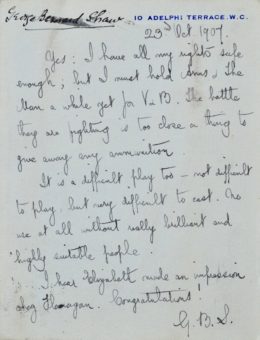 George Bernard Shaw
10 ADELPHI TERRACE. W.C.
23rd Oct 1907.
Yes: I have all my rights safe
enough; but I must hold &
a while yet for V–B. The battle
they are fighting is too close a thing to
give away any ammunition.
It is a difficult play too – not difficult
to play, but very difficult to cast. No
use at all without really brilliant and
highly suitable people.
I hear Elizabeth made an impression
chez Flanagan. Congratulations!
G. B. S.